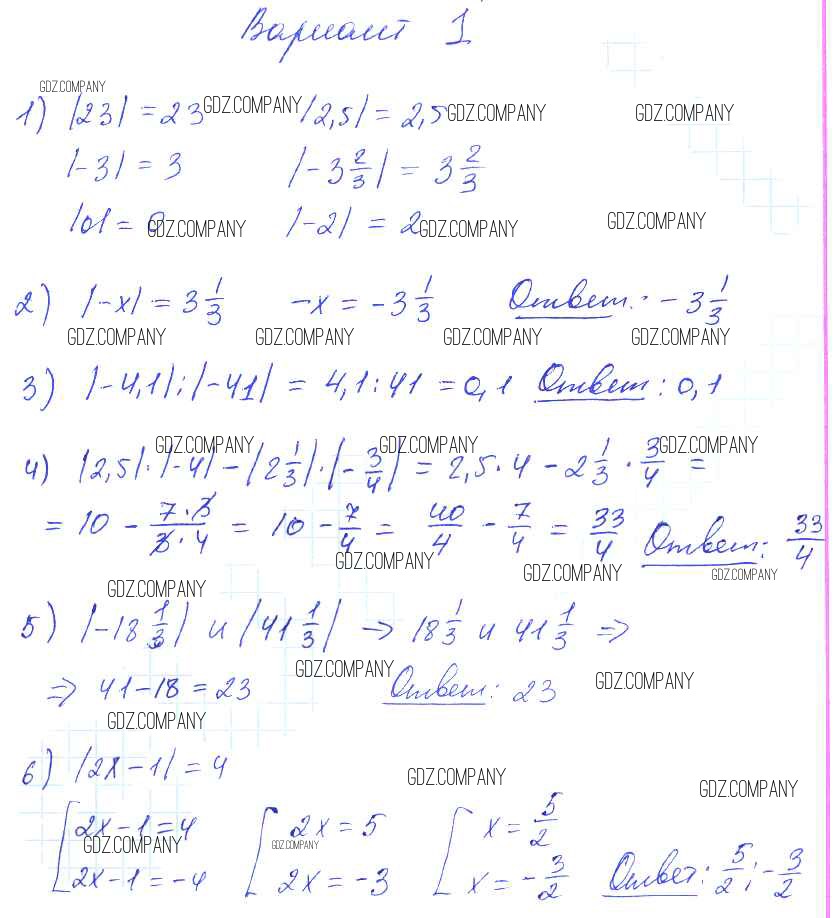 Вариант 1
GDZ.COMPANY
1) |23| = 23 GDZ.COMPANY |2,5| = 2,5 GDZ.COMPANY GDZ.COMPANY
|-3| = 3 |-3 2/3| = 3 2/3
|0| = 0 GDZ.COMPANY |-2| = 2 GDZ.COMPANY GDZ.COMPANY
2) |-x| = 3 1/3 -x = -3 1/3 Ответ: -3 1/3
GDZ.COMPANY GDZ.COMPANY GDZ.COMPANY GDZ.COMPANY
3) |-4,1| : |-41| = 4,1 : 41 = 0,1 Ответ: 0,1
GDZ.COMPANY GDZ.COMPANY GDZ.COMPANY
4) |2,5| · |-4| - |2 1/3| · |-3/4| = 2,5 · 4 - 2 1/3 · 3/4 =
= 10 - 7·3/3·4 = 10 - 7/4 = 40/4 - 7/4 = 33/4 Ответ: 33/4
GDZ.COMPANY GDZ.COMPANY GDZ.COMPANY
GDZ.COMPANY
5) |-18 1/3| и |41 1/3| → 18 1/3 и 41 1/3 ⇒
GDZ.COMPANY GDZ.COMPANY
⇒ 41 - 18 = 23 Ответ: 23
GDZ.COMPANY
6) |2x - 1| = 4
GDZ.COMPANY GDZ.COMPANY
[ 2x - 1 = 4 [ 2x = 5 [ x = 5/2
GDZ.COMPANY GDZ.COMPANY
2x - 1 = -4 2x = -3 x = -3/2 Ответ: 5/2; -3/2